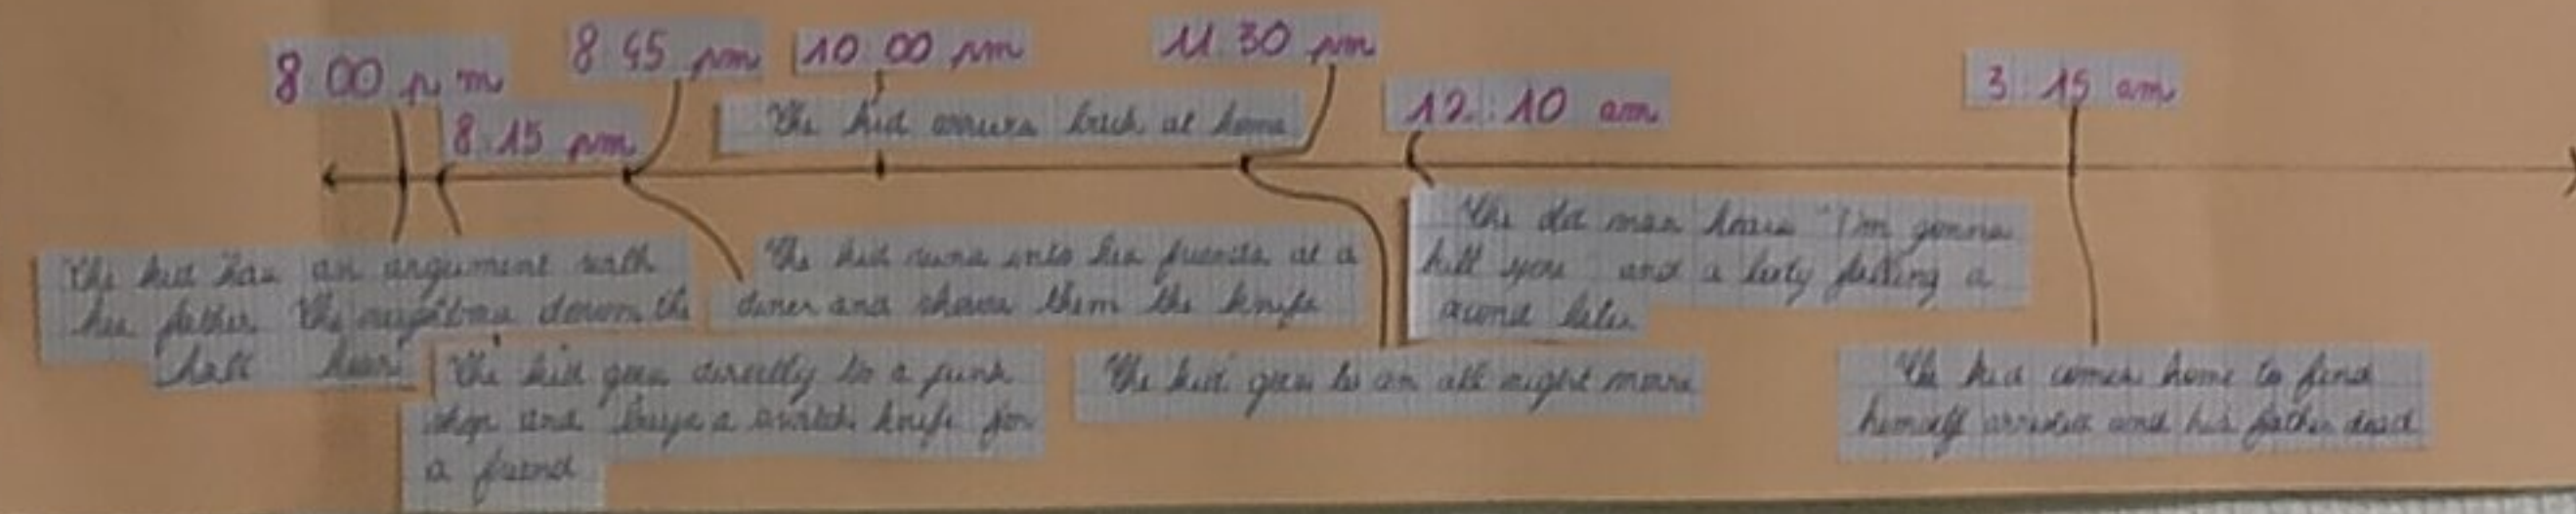 8:00 p.m
8:15 pm
8:45 pm
10:00 pm
11:30 pm
12:10 am
3:15 am
The kid has an argument with
his father. The neighbors down the
hall hear
The kid goes directly to a junk
shop and buys a switch knife for
a friend
The kid runs into his friends at a
diner and shows them the knife
The kid arrives back at home
The kid goes to an all night movie
The old man hears "I'm gonna
kill you" and a body falling a
second later
The kid comes home to find
himself arrested and his father dead